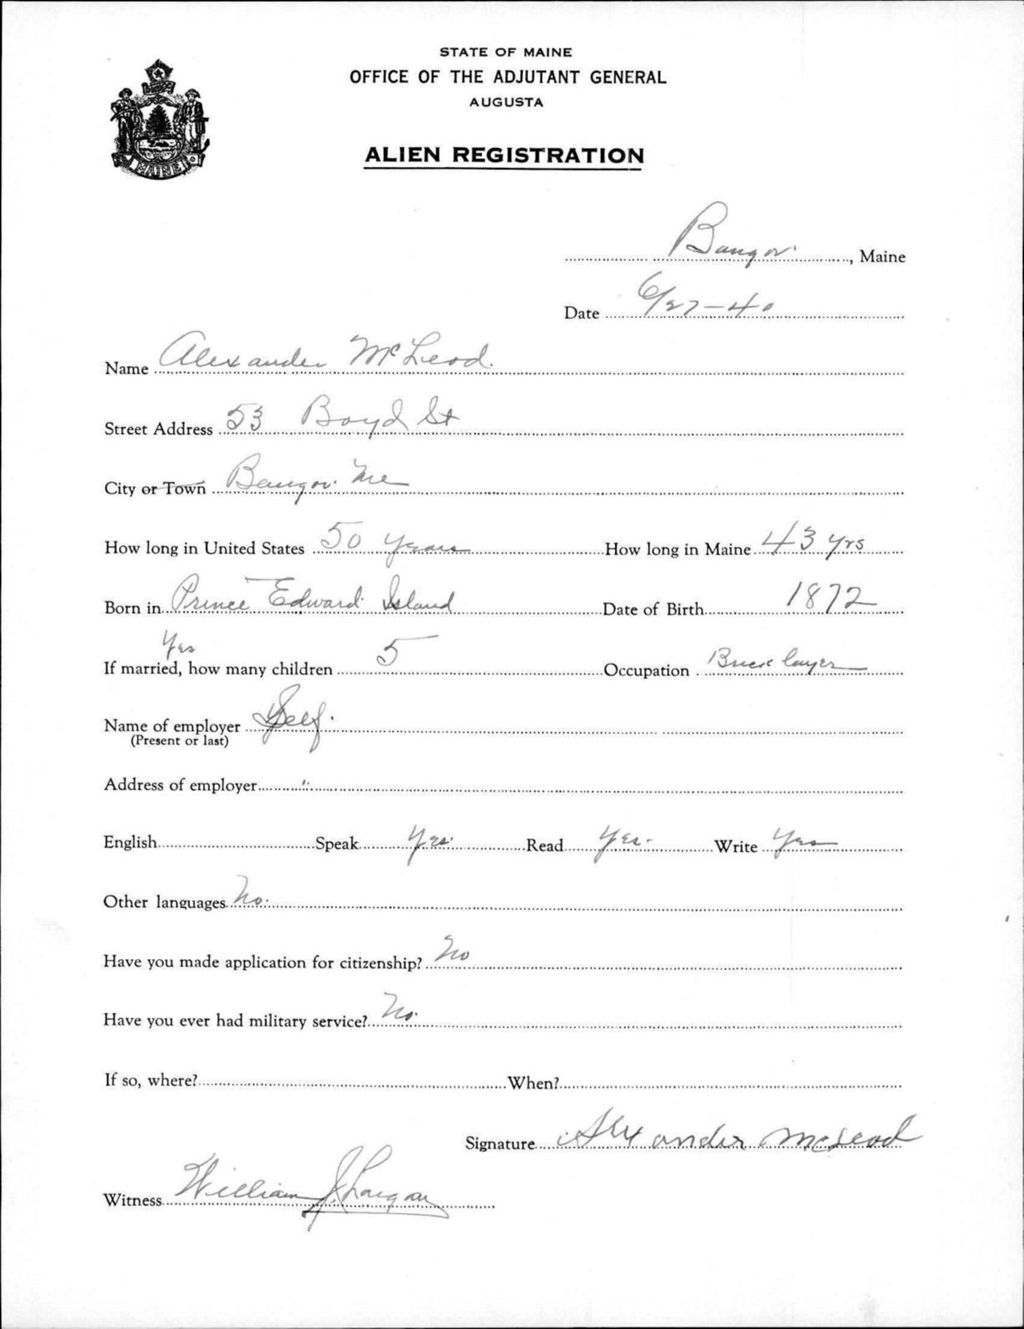 STATE OF MAINE
OFFICE OF THE ADJUTANT GENERAL
AUGUSTA
ALIEN REGISTRATION
MAINE
Bangor, Maine
Date 6/27-40
Name Alexander McLeod.
Street Address 53 Boyd St
City or Town Bangor Me
How long in United States 50 years How long in Maine 43 yrs
Born in Prince Edward Island Date of Birth 1872
Yes
If married, how many children 5 Occupation Brick layer
Name of employer Self.
(Present or last)
Address of employer "
English Speak Yes. Read Yes. Write Yes
Other languages No.
Have you made application for citizenship? No
Have you ever had military service? No.
If so, where? When?
Signature Alexander McLeod
Witness William J.